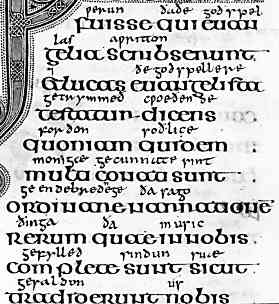 werun ðaðe godspel
fuisse qui euan
las awritton
gelia scribserunt
ðe godspellere
et lucas euangelista
getrymmeð cuoeðende
testatur dicens
forðon soðlice
quoniam quidem
monige gecunnate sint
multi conati sunt
ge endebrednege ða saga
ordinare narratione
ðinga ða in usic
rerum quae in nobis
gefylled sindun suæ
completae sunt sicut
gesaldon us
tradiderunt nobis